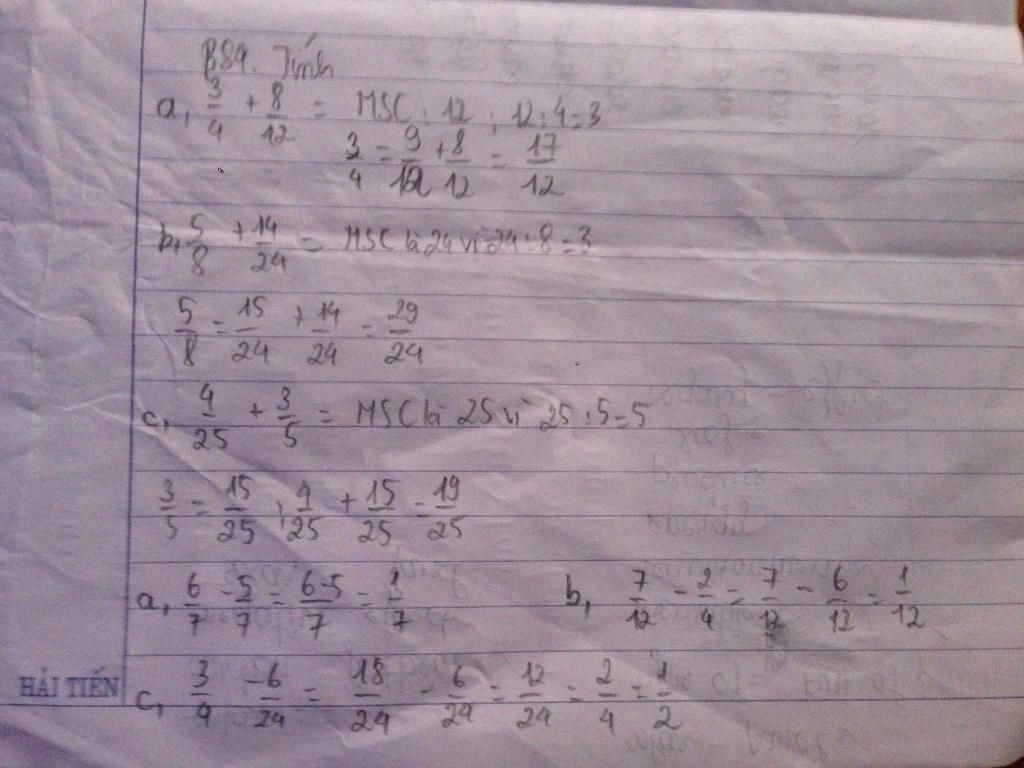 B84. Tính
a, 3/4 + 8/12 = MSC : 12 ; 12 : 4 = 3
3/4 = 9/12 + 8/12 = 17/12
b, 5/8 + 14/24 = MSC là 24 vì 24 : 8 = 3
5/8 = 15/24 + 14/24 = 29/24
c, 4/25 + 3/5 = MSC là 25 vì 25 : 5 = 5
3/5 = 15/25 ; 4/25 + 15/25 = 19/25
a, 6/7 - 5/7 = 6-5/7 = 1/7
b, 7/12 - 2/4 = 7/12 - 6/12 = 1/12
c, 3/4 - 6/24 = 18/24 - 6/24 = 12/24 = 2/4 = 1/2
HẢI TIẾN